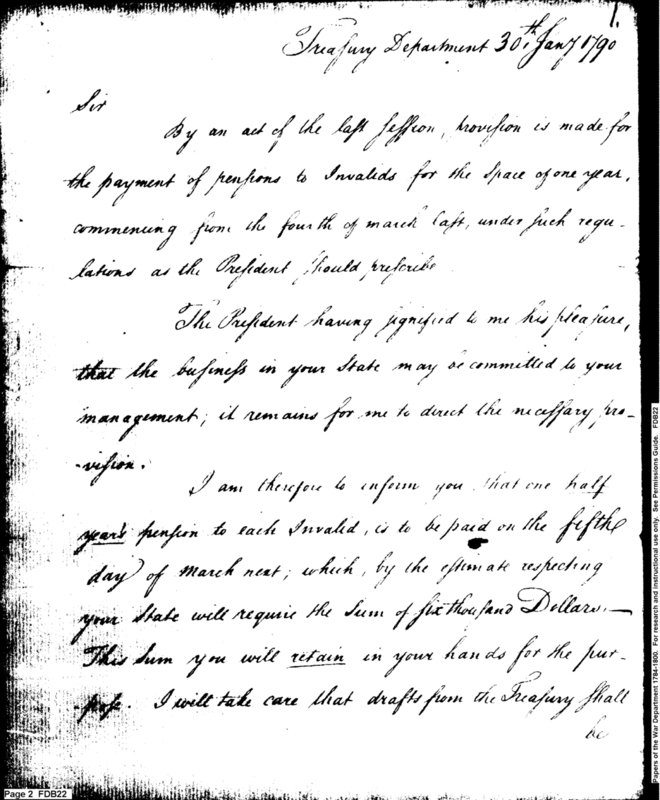 1.
Treasury Department 30th Jany 1790
Sir
By an act of the last session, provision is made for
the payment of pensions to Invalids for the space of one year,
commencing from the fourth of march last, under such regu-
lations as the President should prescribe
The President having signified to me his pleasure,
that the business in your State may be committed to your
management; it remains for me to direct the necessary pro-
-vision.
I am therefore to inform you that one half
year's pension to each Invalid, is to be paid on the fifth
day of March next; which, by the estimate respecting
your State will require the Sum of six thousand Dollars.—
This Sum you will retain in your hands for the pur-
-pose. I will take care that drafts from the Treasury shall
be
Page 2 FDB22
Papers of the War Department 1784-1800. For research and instructional use only. See Permissions Guide. FDB22